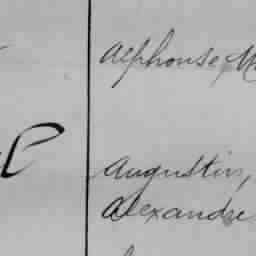 Alphonse, M
Augustin,
Alexandre